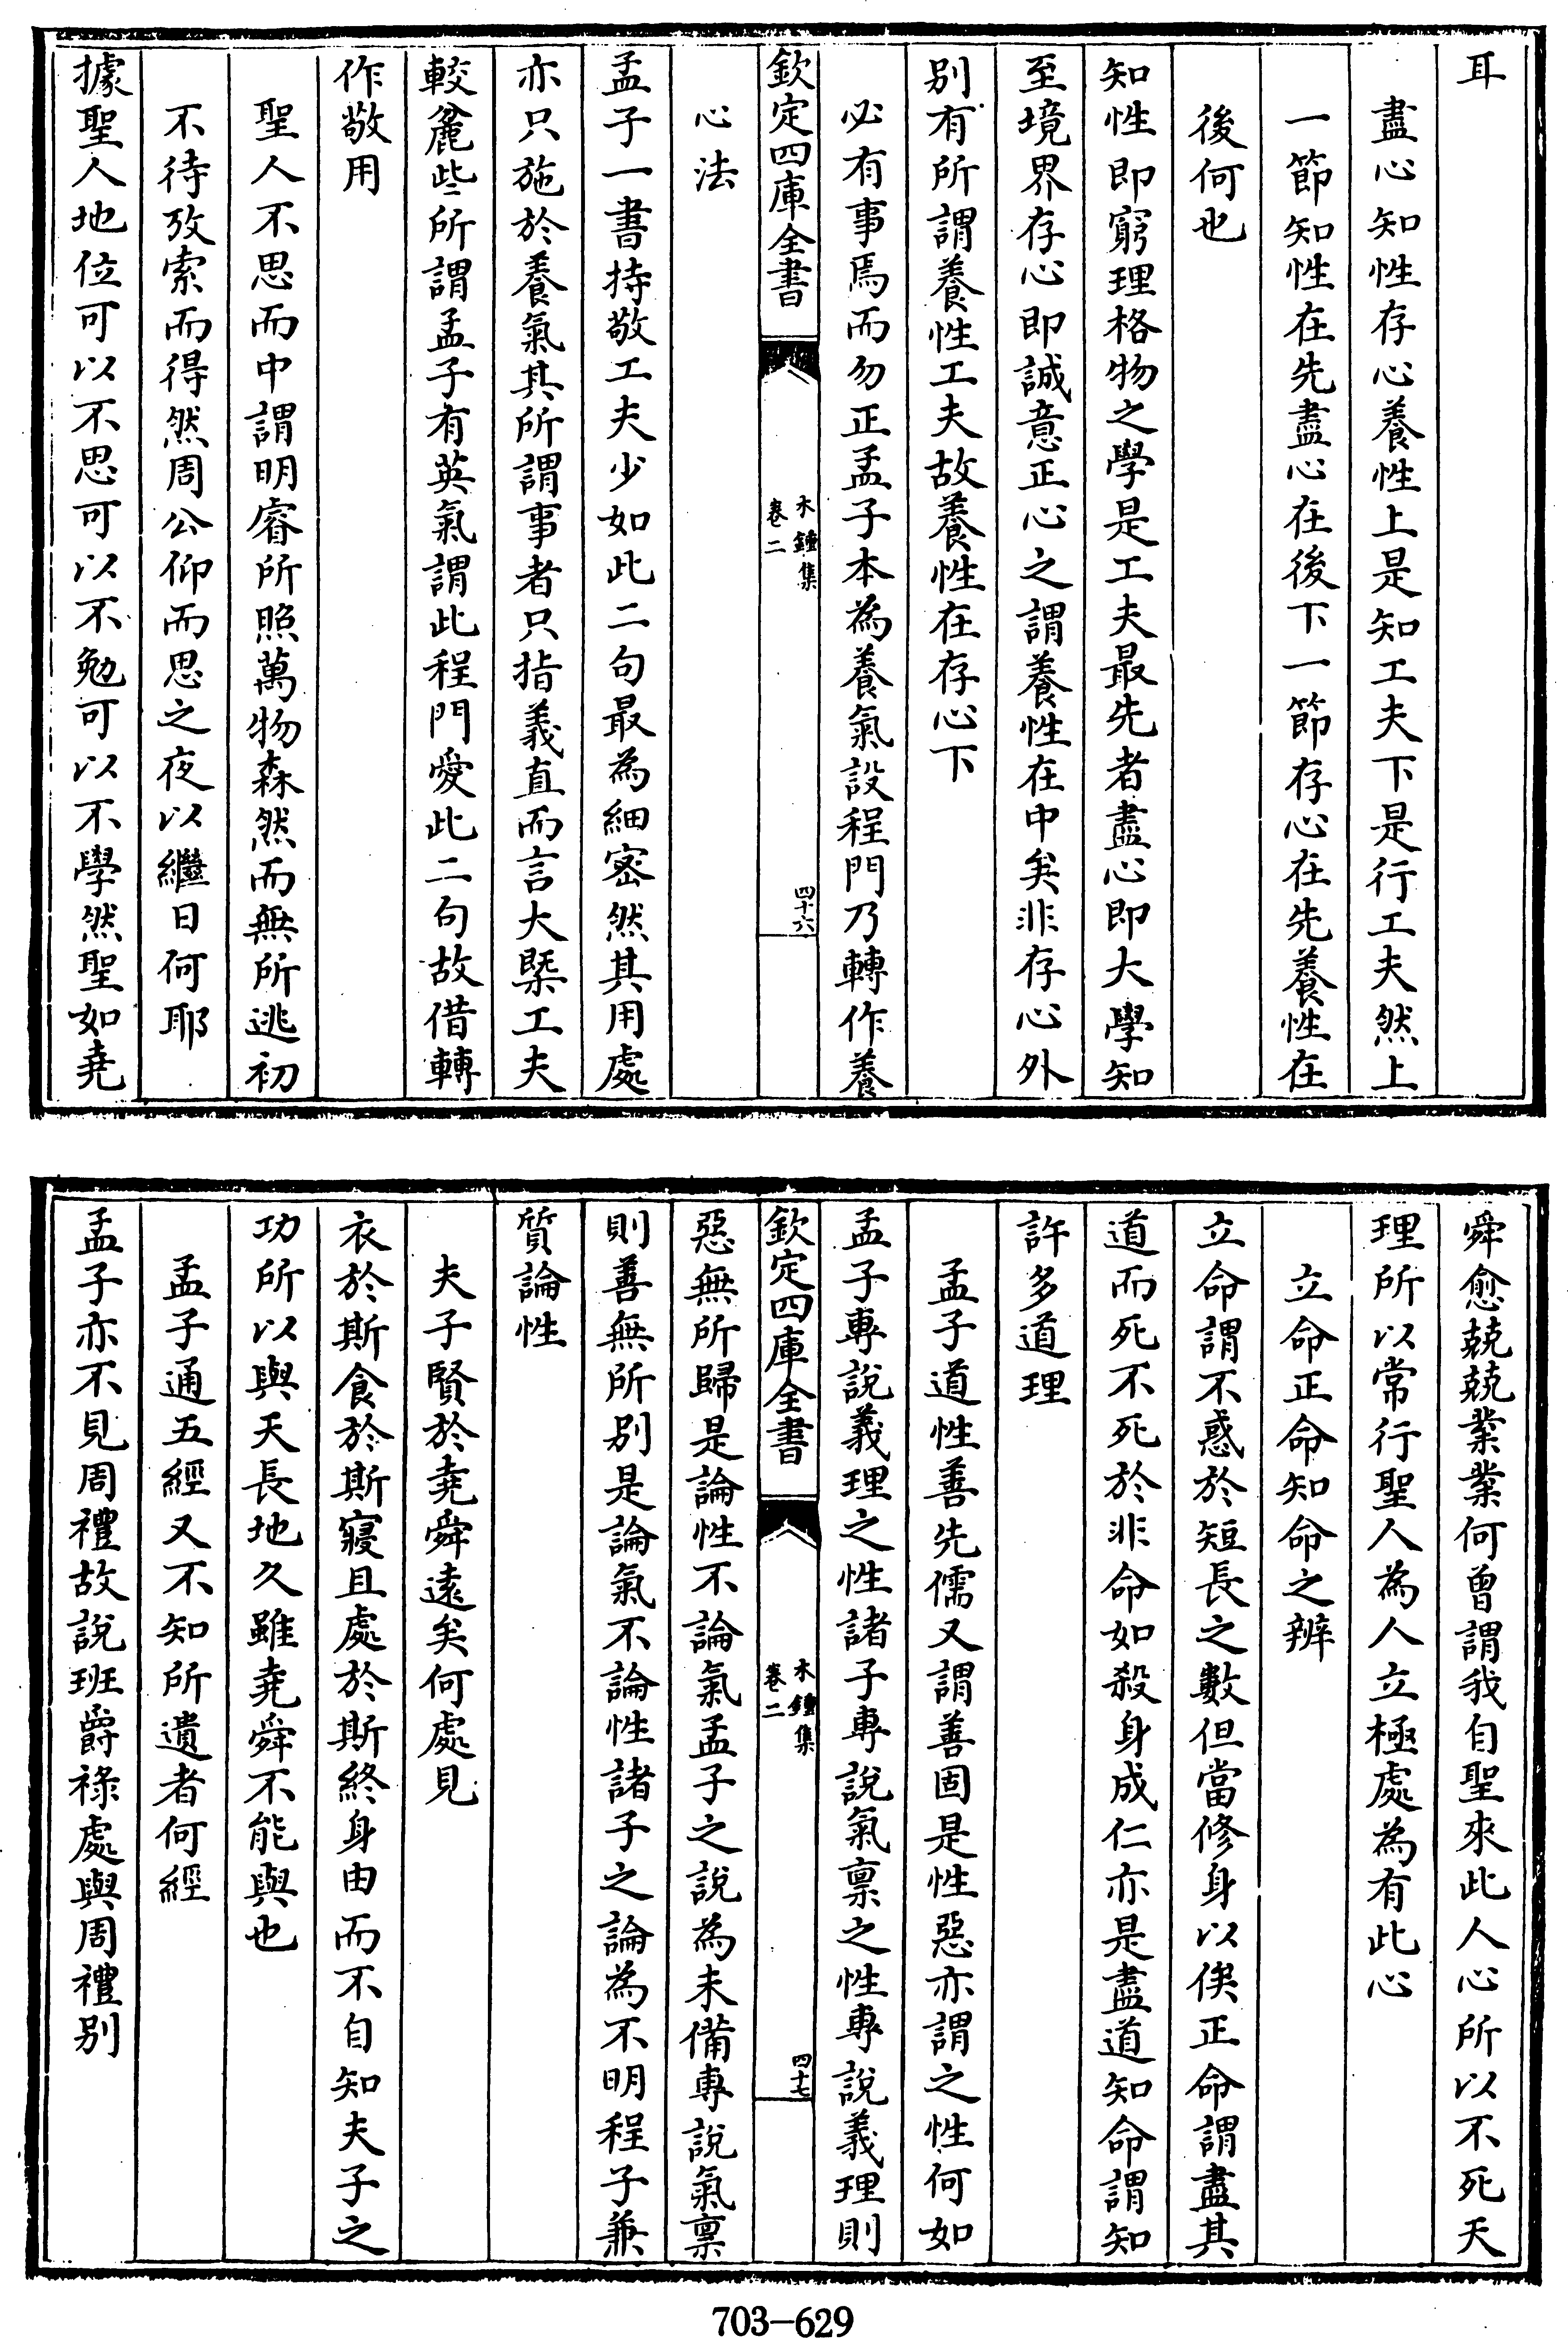 耳
盡心知性存心養性上是知工夫下是行工夫然上
一節知性在先盡心在後下一節存心在先養性在
後何也
知性即窮理格物之學是工夫最先者盡心即大學知
至境界存心即誠意正心之謂養性在中矣非存心外
别有所謂養性工夫故養性在存心下
必有事焉而勿正孟子本為養氣設程門乃轉作養
欽定四庫全書
木鍾集
卷二
四十六
心法
孟子一書持敬工夫少如此二句最為細密然其用處
亦只施於養氣其所謂事者只指義直而言大槩工夫
較麄些所謂孟子有英氣謂此程門愛此二句故借轉
作敬用
聖人不思而中謂明睿所照萬物森然而無所逃初
不待攷索而得然周公仰而思之夜以繼日何耶
據聖人地位可以不思可以不勉可以不學然聖如堯
舜愈兢兢業業何曾謂我自聖來此人心所以不死天
理所以常行聖人為人立極處為有此心
立命正命知命之辨
立命謂不惑於短長之數但當修身以俟正命謂盡其
道而死不死於非命如殺身成仁亦是盡道知命謂知
許多道理
孟子道性善先儒又謂善固是性惡亦謂之性何如
孟子專說義理之性諸子專說氣禀之性專說義理則
欽定四庫全書
木鍾集
卷二
四十七
惡無所歸是論性不論氣孟子之說為未備專說氣禀
則善無所别是論氣不論性諸子之論為不明程子兼
質論性
夫子賢於堯舜遠矣何處見
衣於斯食於斯寢且處於斯終身由而不自知夫子之
功所以與天長地久雖堯舜不能與也
孟子通五經又不知所遺者何經
孟子亦不見周禮故說班爵祿處與周禮别
703-629